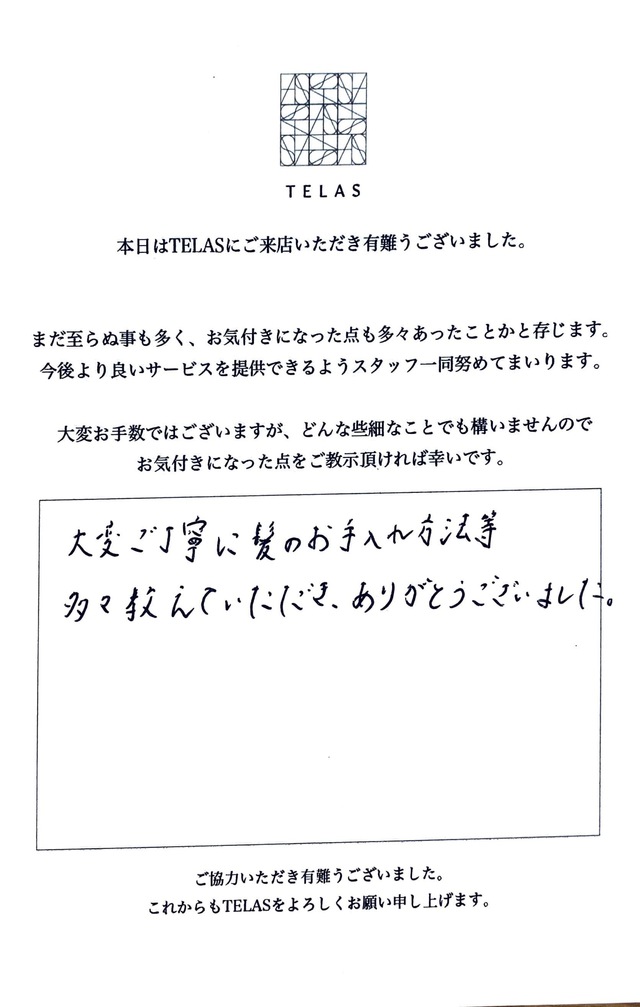 TELAS
本日はTELASにご来店いただき有難うございました。
まだ至らぬ事も多く、お気付きになった点も多々あったことかと存じます。
今後より良いサービスを提供できるようスタッフ一同努めてまいります。
大変お手数ではございますが、どんな些細なことでも構いませんので
お気付きになった点をご教示頂ければ幸いです。
大変ご丁寧に髪のお手入れ方法等
多々教えていただき、ありがとうございました。
ご協力いただき有難うございました。
これからもTELASをよろしくお願い申し上げます。